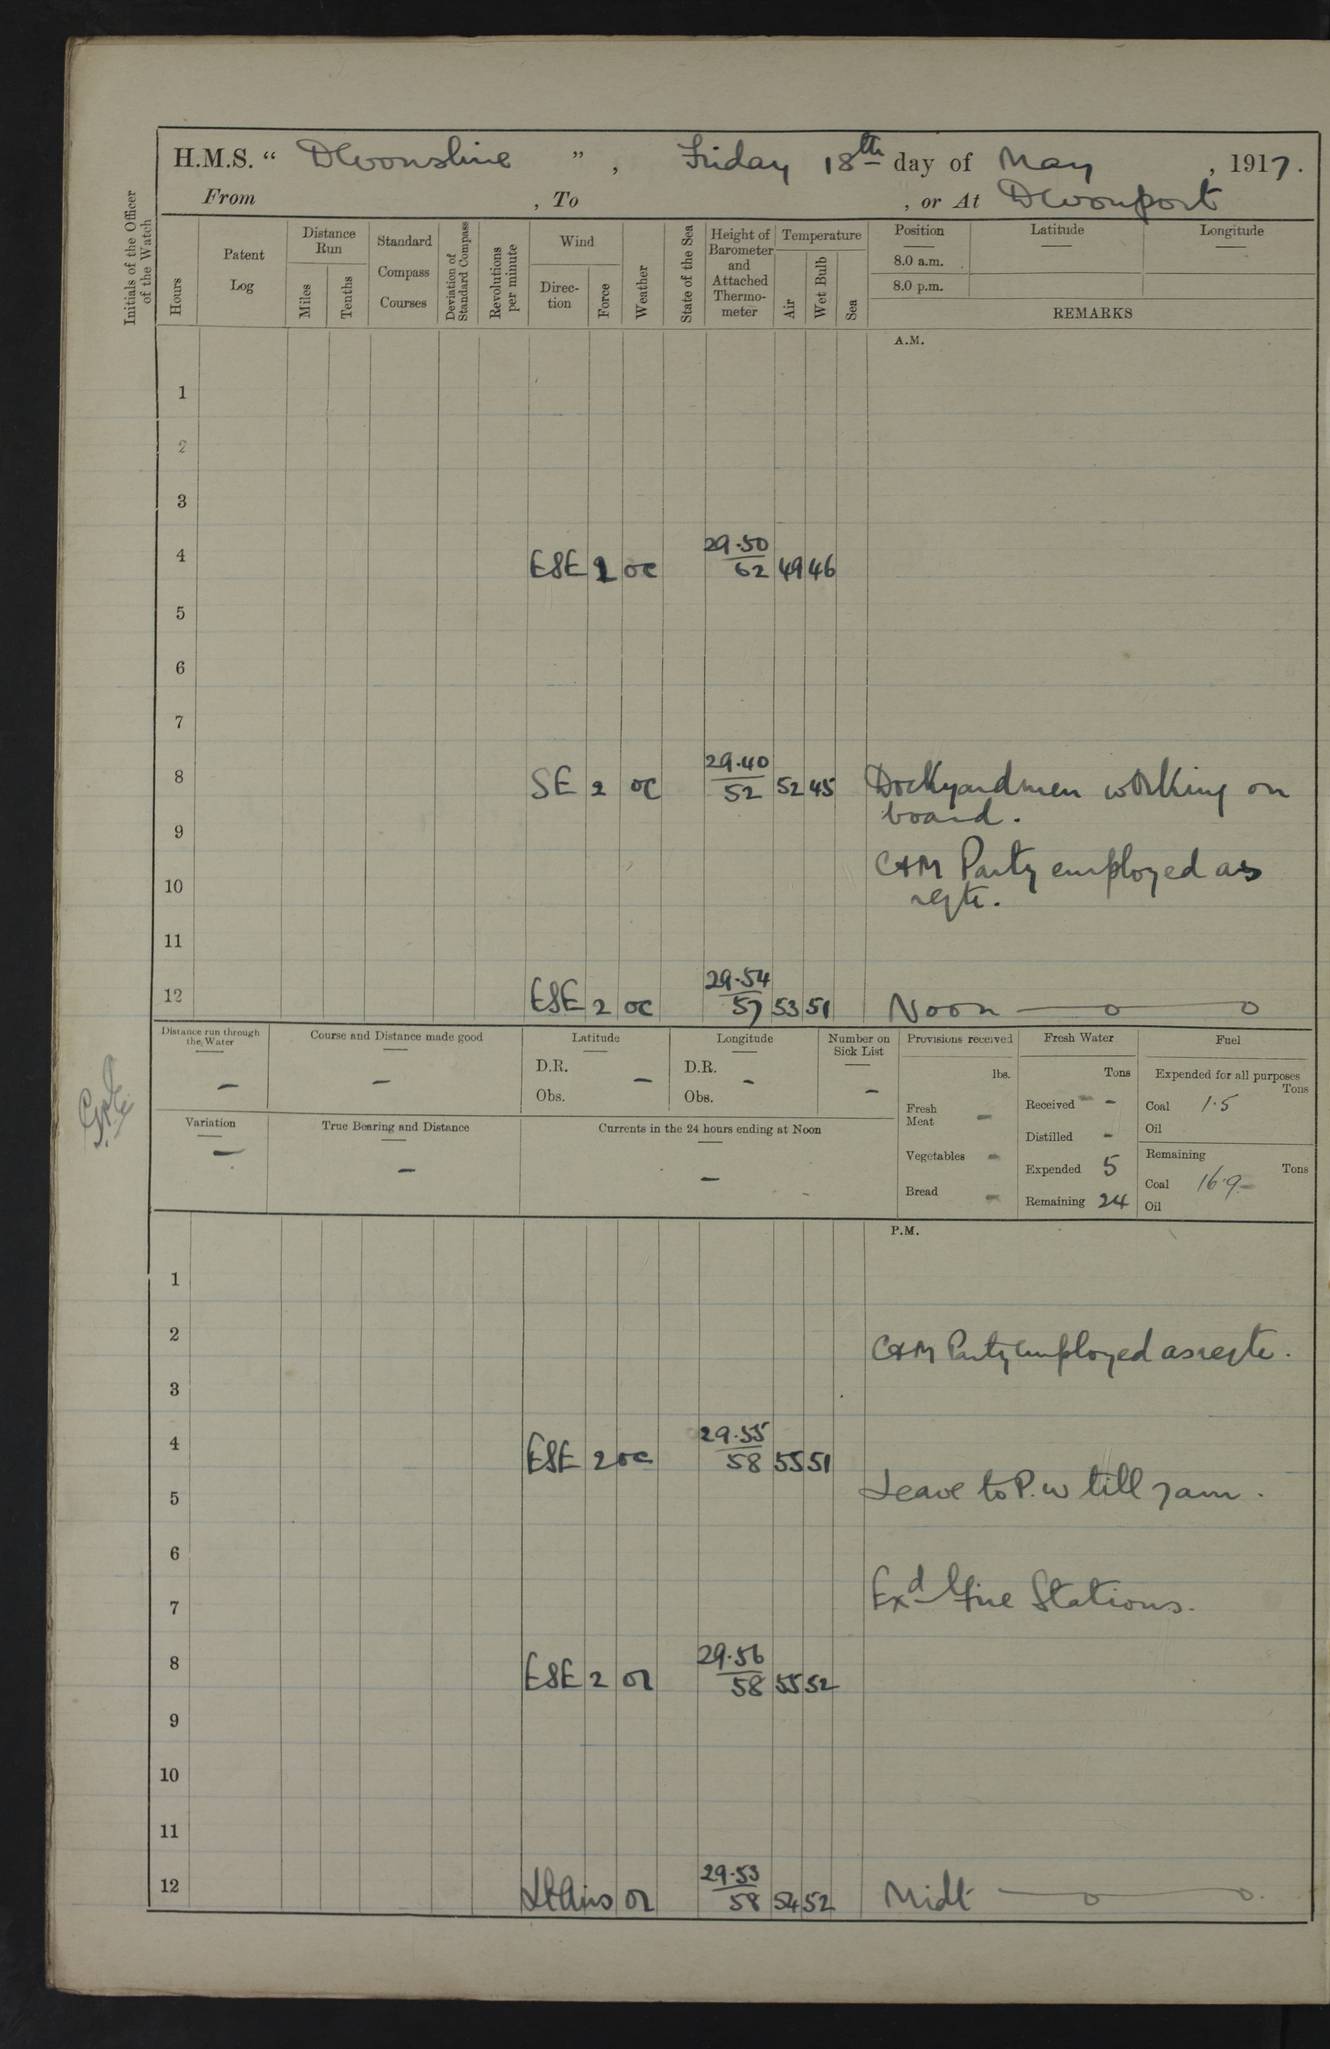 H.M.S. “ Devonshire ” , Friday 18th day of May , 1917.
From , To , or At Devonport
Initials of the Officer of the Watch
Hours
Patent Log
Distance Run
Miles
Tenths
Standard Compass Courses
Deviation of Standard Compass
Revolutions per minute
Wind
Direc-tion
Force
Weather
State of the Sea
Height of Barometer and Attached Thermo-meter
Temperature
Air
Wet Bulb
Sea
Position
8.0 a.m.
8.0 p.m.
Latitude
Longitude
REMARKS
A.M.
1
2
3
4 ESE 1 oc 29.50 62 49 46
5
6
7
8 SE 2 oc 29.40 52 52 45 Dockyardmen working on
board.
9
C & M Party employed as
10
reqte.
11
12 ESE 2 oc 29.54 57 53 51 Noon
Distance run through the Water
—
Course and Distance made good
—
Latitude
D.R. —
Obs.
Longitude
D.R. —
Obs.
Number on Sick List
—
Provisions received
lbs.
Fresh Meat —
Vegetables —
Bread —
Fresh Water
Tons
Received —
Distilled —
Expended 5
Remaining 24
Fuel
Expended for all purposes
Tons
Coal 1.5
Oil
Remaining
Tons
Coal 16.9
Oil
Variation
—
True Bearing and Distance
—
Currents in the 24 hours ending at Noon
—
P.M.
1
2
C & M Party employed as reqte.
3
4 ESE 2 oc 29.55 58 55 51
5 Leave to P.W till 7am.
6
7 Exd Fire Stations.
8 ESE 2 or 29.56 58 55 52
9
10
11
12 Lt Airs or 29.53 58 54 52 Midt